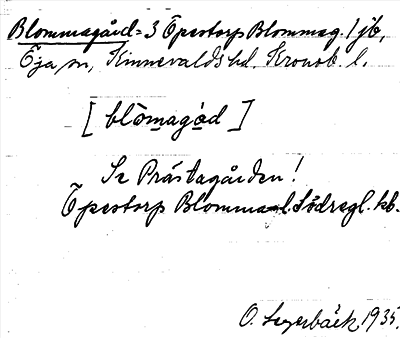 Blommagård = 3 Öpestorp Blommag. 1 jb,
Öja sn, Kinnevalds hd. Kronob. l.
[ blòmagό̱d ]
Se Prästagården!
Öpestorp Blomma- l. Södregl. kb.
O. Segerbäck 1935.